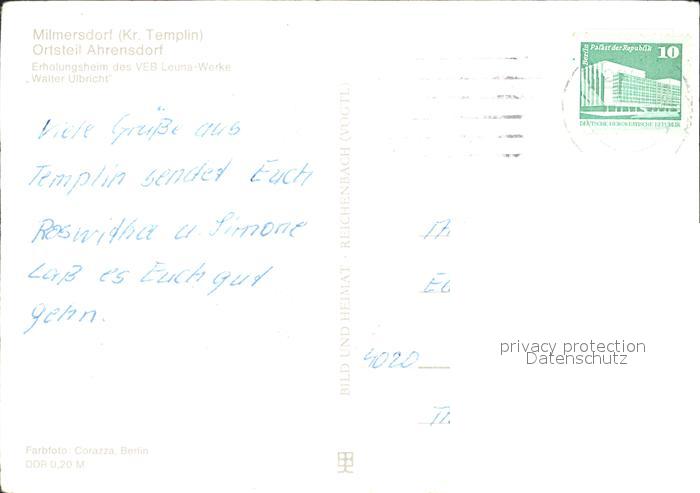 Milmersdorf (Kr. Templin)
Ortsteil Ahrensdorf
Erholungsheim des VEB Leuna-Werke
„Walter Ulbricht“
Viele Grüße aus
Templin sendet Euch
Roswitha u. Simone
Laß es Euch gut
gehn.
Farbfoto: Corazza, Berlin
DDR 0,20 M
BILD UND HEIMAT · REICHENBACH (VOGTL)
Berlin Palast der Republik 10
DEUTSCHE DEMOKRATISCHE REPUBLIK
4020
privacy protection
Datenschutz